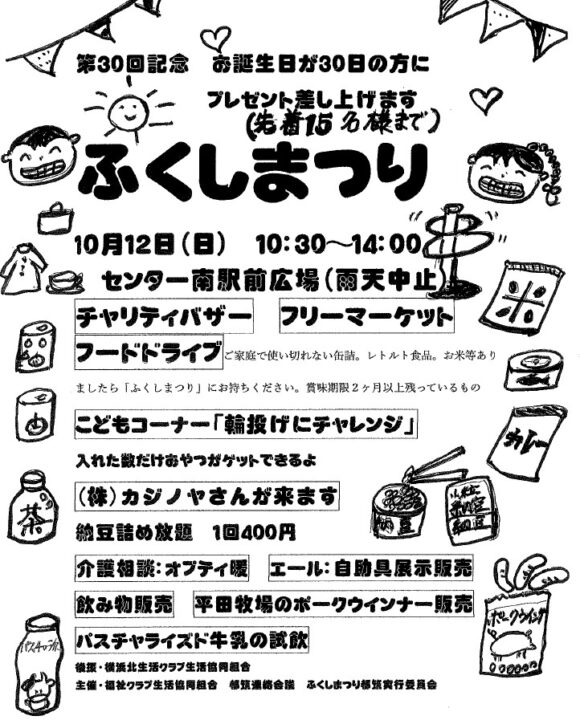 第30回記念　お誕生日が30日の方に
プレゼント差し上げます
(先着15名様まで)
ふくしまつり
10月12日(日)　10:30～14:00
センター南駅前広場(雨天中止)
チャリティバザー　フリーマーケット
フードドライブ ご家庭で使い切れない缶詰。レトルト食品。お米等あり
ましたら「ふくしまつり」にお持ちください。賞味期限2ヶ月以上残っているもの
米
こどもコーナー「輪投げにチャレンジ」
カレー
入れた数だけおやつがゲットできるよ
(株)カジノヤさんが来ます
茶
納豆
小粒
納豆
納豆詰め放題　1回400円
介護相談:オプティ暖　エール:自助具展示販売
飲み物販売　平田牧場のポークウインナー販売
ポークウインナー
パスチャライズド牛乳の試飲
後援・横浜北生活クラブ生活協同組合
主催・福祉クラブ生活協同組合　都筑連絡会議　ふくしまつり都筑実行委員会